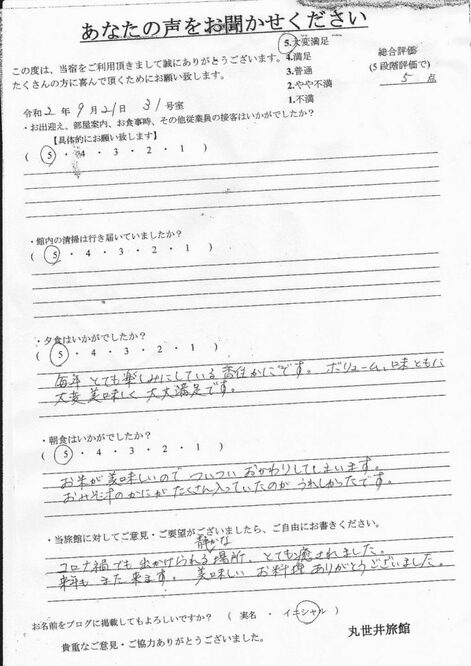 あなたの声をお聞かせください
この度は、当宿をご利用頂きまして誠にありがとうございます。
たくさんの方に喜んで頂くためにお願い致します。
5.大変満足
4.満足
3.普通
2.やや不満
1.不満
総合評価
(5段階評価で)
5 点
令和2年9月21日 31号室
・お出迎え、部屋案内、お食事時、その他従業員の接客はいかがでしたか?
【具体的にお願い致します】
( 5 ・ 4 ・ 3 ・ 2 ・ 1 )
・館内の清掃は行き届いていましたか?
( 5 ・ 4 ・ 3 ・ 2 ・ 1 )
・夕食はいかがでしたか?
( 5 ・ 4 ・ 3 ・ 2 ・ 1 )
毎年とても楽しみにしている香住かにです。ボリューム、味ともに
大変美味しく大大満足です。
・朝食はいかがでしたか?
( 5 ・ 4 ・ 3 ・ 2 ・ 1 )
お米が美味しいのでついついおかわりしてしまいます。
おみそ汁のかにがたくさん入っていたのがうれしかったです。
・当旅館に対してご意見・ご要望がございましたら、ご自由にお書きください。
静かな
コロナ禍でも出かけられる場所、とても癒されました。
来年もまた来ます。美味しいお料理ありがとうございました。
お名前をブログに掲載してもよろしいですか? ( 実名 ・ イニシャル )
貴重なご意見・ご協力ありがとうございました。
丸世井旅館